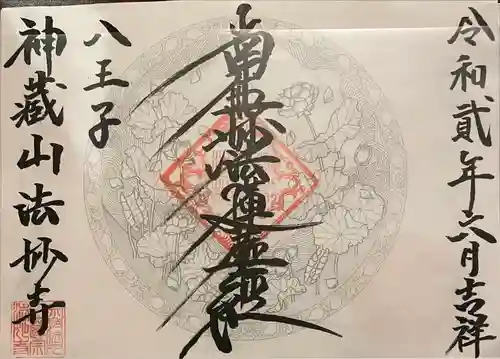 令和貳年六月吉祥
南無妙法蓮華経
八王子
神蔵山法妙寺